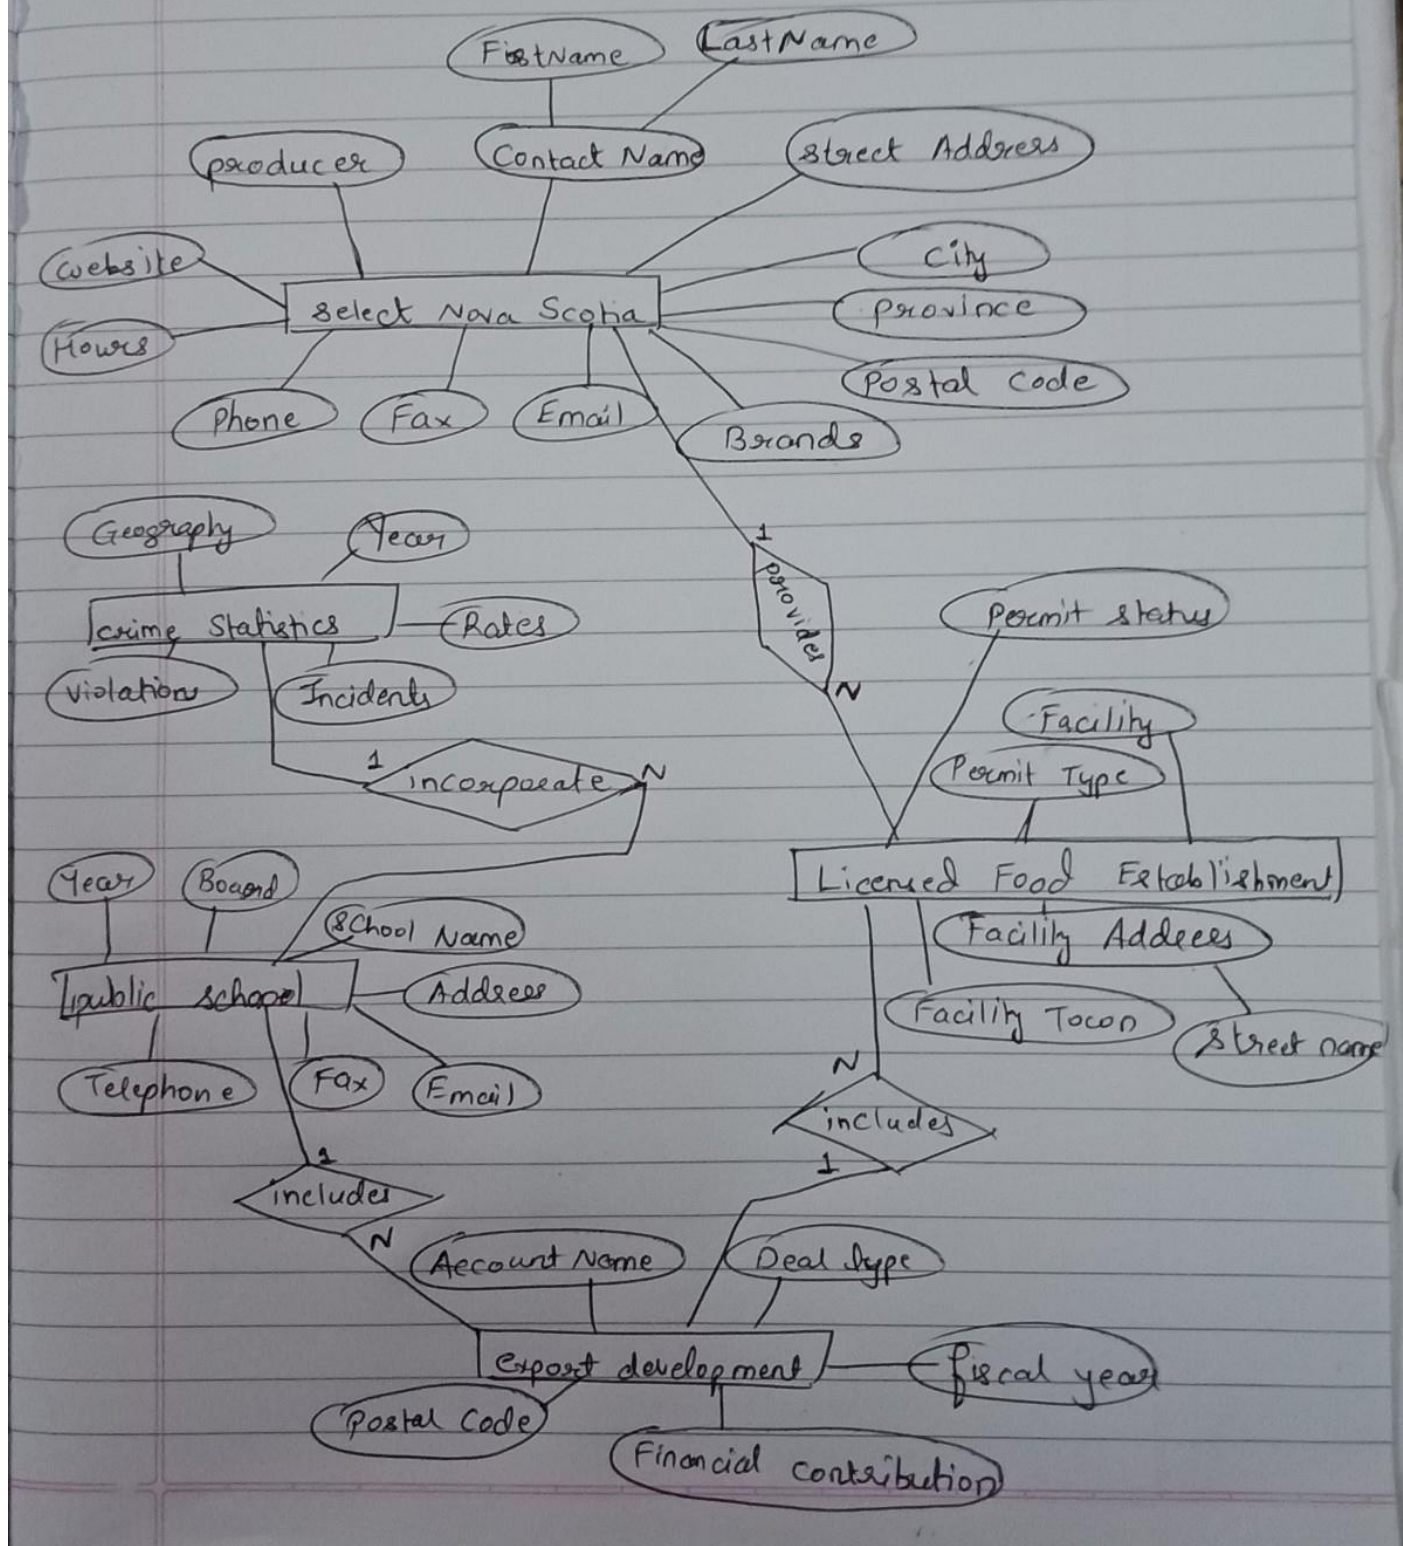 FirstName
LastName
producer
Contact Name
Street Address
website
City
Select Nova Scotia
province
Hours
Postal Code
Phone
Fax
Email
Brands
Geography
Year
1
provides
N
crime Statistics
Rates
Permit status
Violation
Incidents
Facility
1
incorporate
N
Permit Type
Year
Board
Licensed Food Establishment
School Name
Facility Address
public school
Address
Facility Town
Street name
Telephone
Fax
Email
N
includes
1
1
includes
N
Account Name
Deal type
export development
fiscal year
Postal Code
Financial contribution